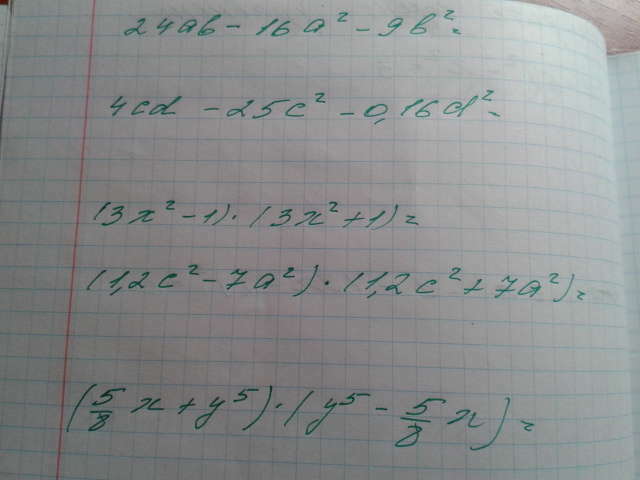 24ab - 16a² - 9b² =
4cd - 25c² - 0,16d² =
(3x² - 1)·(3x² + 1) =
(1,2c² - 7a²)·(1,2c² + 7a²) =
(5/8 x + y⁵)·(y⁵ - 5/8 x) =